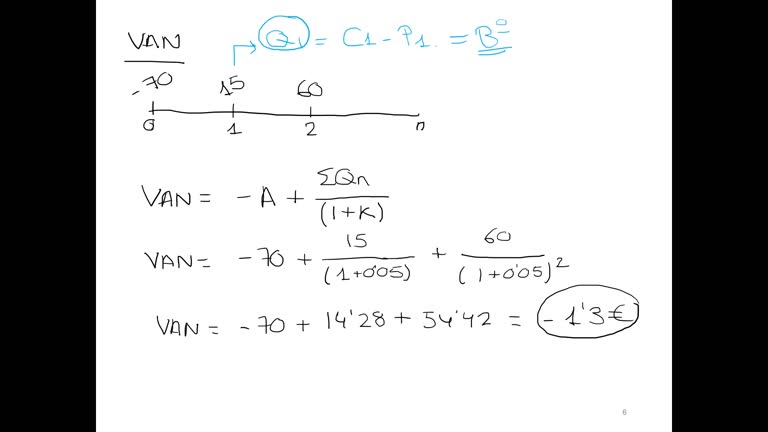 VAN
Q1 = C1 - P1. = Bº
-70 15 60
0 1 2 n
VAN = -A + ΣQn/(1+K)
VAN = -70 + 15/(1+0'05) + 60/(1+0'05)²
VAN = -70 + 14'28 + 54'42 = -1'3€
6